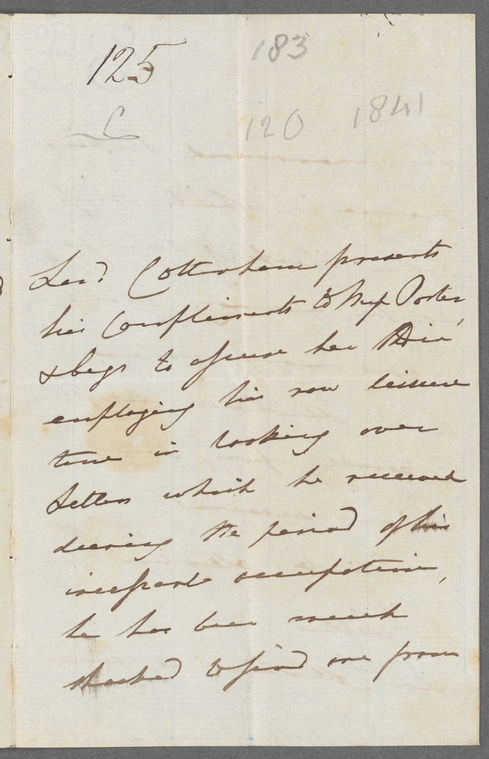 125
183
L
120 1841
Lord Cottenham presents
his Compliments to Miss Porter
& begs to assure her that in
employing his now leisure
time in looking over
Letters which he received
during the period of his
incessant occupation,
he has been much
shocked to find one from